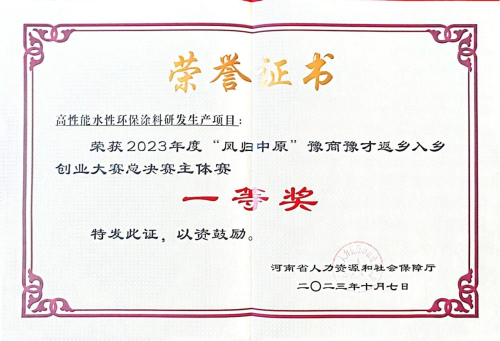 荣誉证书
高性能水性环保涂料研发生产项目：
荣获2023年度“凤归中原”豫商豫才返乡入乡
创业大赛总决赛主体赛
一等奖
特发此证，以资鼓励。
河南省人力资源和社会保障厅
二〇二三年十月七日